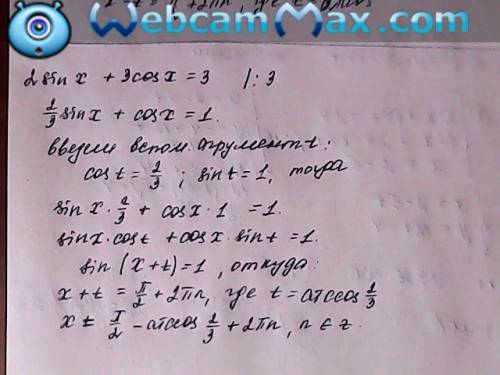 WebcamMax.com
2 sin x + 3 cos x = 3 /: 3
2/3 sin x + cos x = 1.
введем вспом. аргумент t:
cos t = 2/3 ; sin t = 1, тогда
sin x · 2/3 + cos x · 1 = 1.
sin x · cos t + cos x · sin t = 1.
sin (x + t) = 1, откуда:
x + t = π/2 + 2πn, где t = arccos 2/3
x = π/2 - arccos 2/3 + 2πn, n ∈ z.